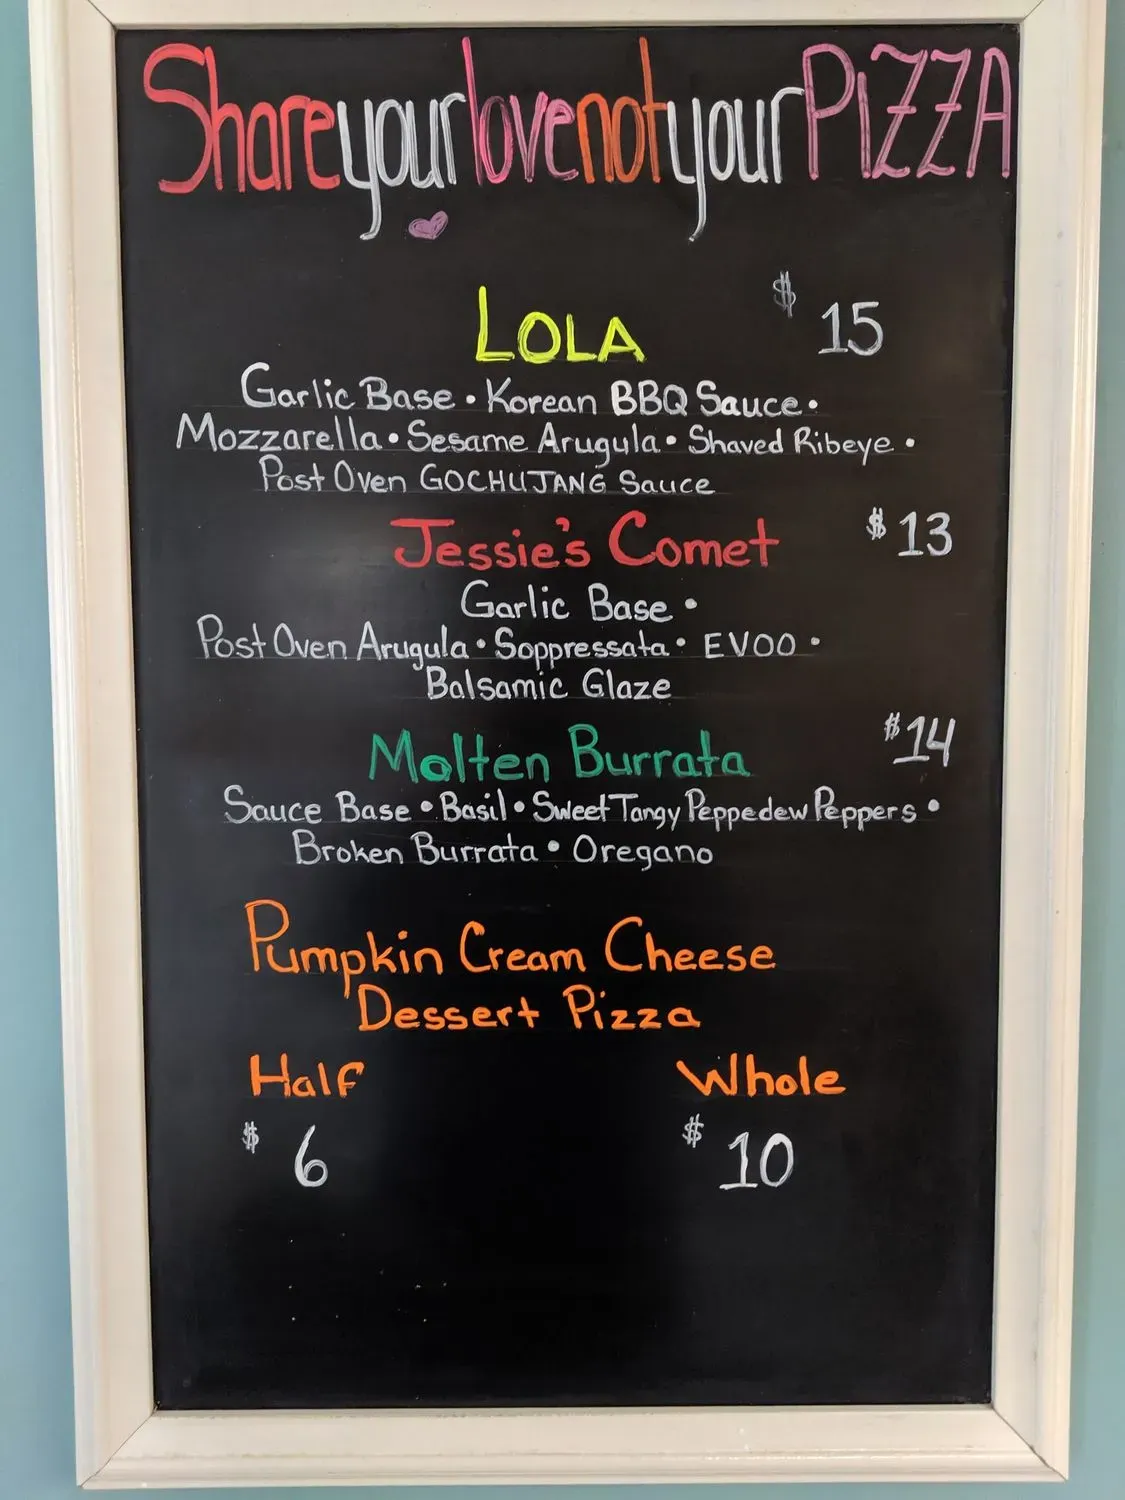 Share your love not your PIZZA
LOLA $15
Garlic Base • Korean BBQ Sauce •
Mozzarella • Sesame Arugula • Shaved Ribeye •
Post Oven GOCHUJANG Sauce
Jessie's Comet $13
Garlic Base •
Post Oven Arugula • Soppressata • EVOO •
Balsamic Glaze
Molten Burrata $14
Sauce Base • Basil • Sweet Tangy Peppedew Peppers •
Broken Burrata • Oregano
Pumpkin Cream Cheese
Dessert Pizza
Half Whole
$6 $10